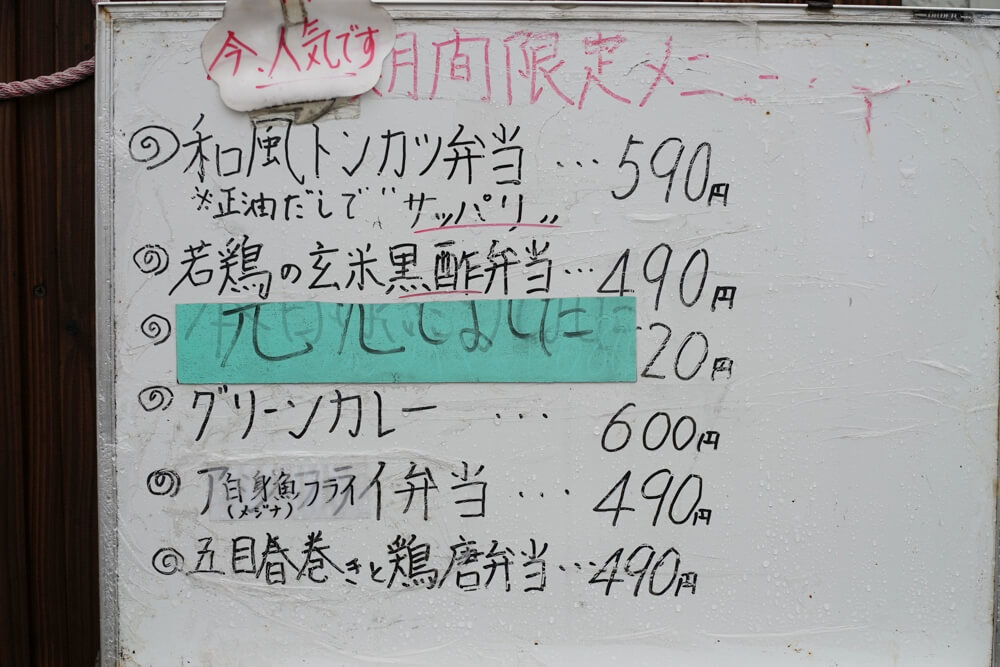 今、人気です
期間限定メニュー
和風トンカツ弁当 … 590円
※正油だしで〝サッパリ〟
若鶏の玄米黒酢弁当 … 490円
20円
グリーンカレー … 600円
白身魚フライ弁当 … 490円
(メジナ)
五目春巻きと鶏唐弁当 … 490円